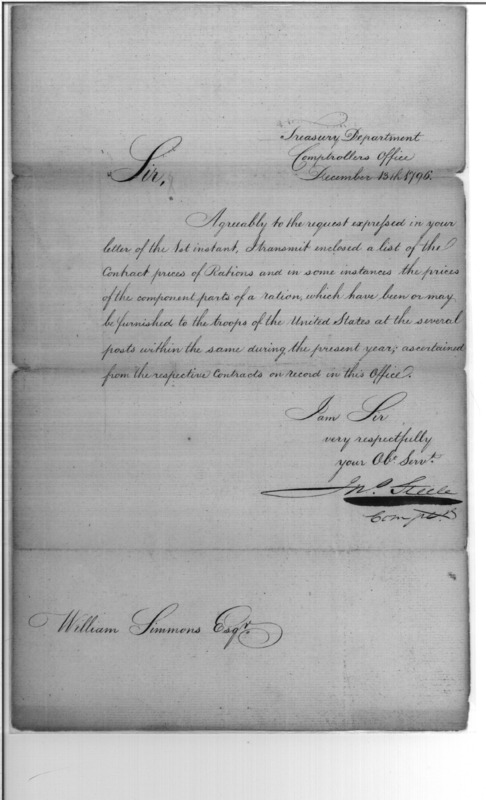 Treasury Department
Comptrollers Office
December 13th 1796.
Sir,
Agreeably to the request expressed in your
letter of the 1st instant, I transmit enclosed a list of the
Contract prices of Rations and in some instances the prices
of the component parts of a ration, which have been or may
be furnished to the troops of the United States at the several
posts within the same during the present year; ascertained
from the respective Contracts on record in this Office.
I am Sir
very respectfully
your Obt. Servt.
Jno. Steele
Compt.
William Simmons Esqr.